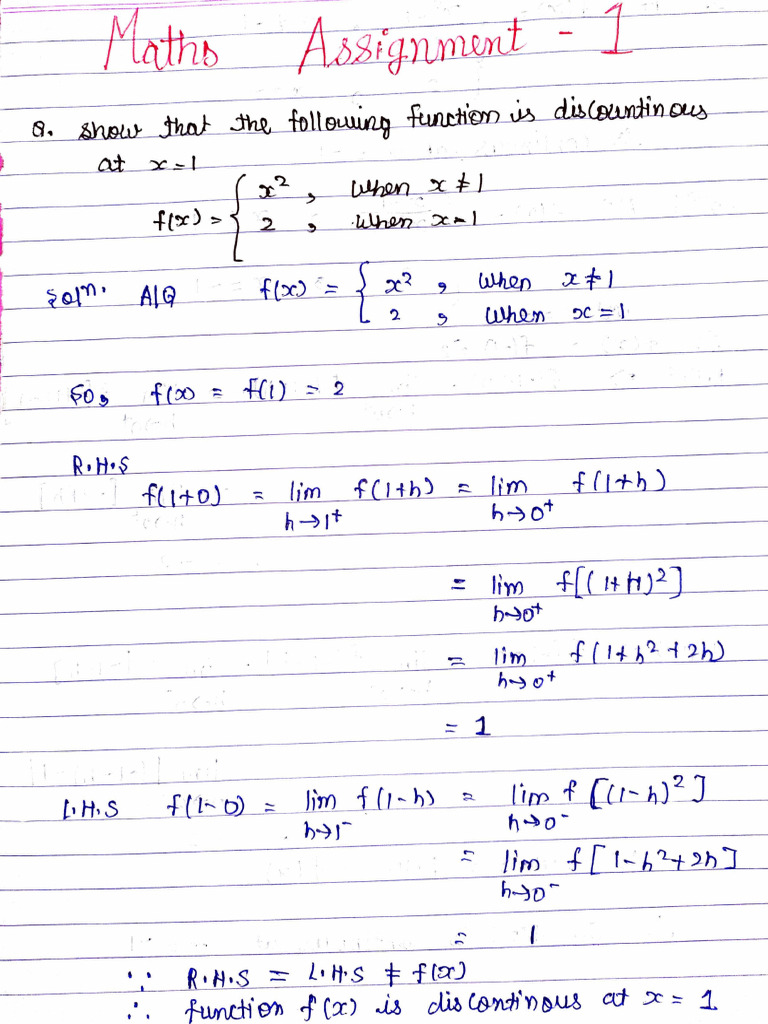 Maths Assignment - 1
Q. show that the following function is discountinous
at x = 1
f(x) = { x² , when x ≠ 1
2 , when x = 1
Solⁿ. A/Q f(x) = { x² , when x ≠ 1
2 , when x = 1
So, f(x) = f(1) = 2
R.H.S
f(1+0) = lim f(1+h) = lim f(1+h)
h→1⁺ h→0⁺
= lim f[(1+H)²]
h→0⁺
= lim f(1+h²+2h)
h→0⁺
= 1
L.H.S f(1-0) = lim f(1-h) = lim f[(1-h)²]
h→1⁻ h→0⁻
= lim f[1-h²+2h]
h→0⁻
= 1
∵ R.H.S = L.H.S ≠ f(x)
∴ function f(x) is discontinous at x = 1